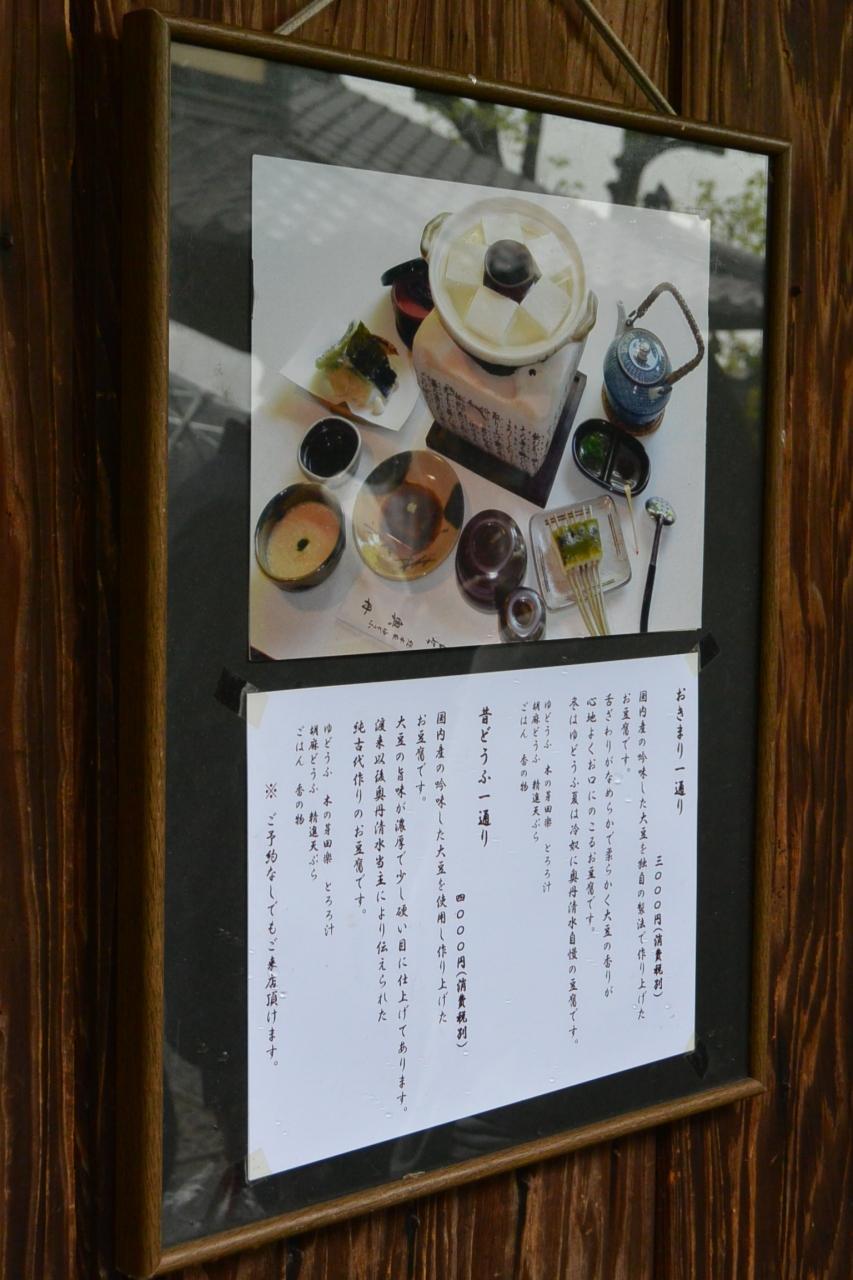 おきまり一通り
三〇〇〇円(消費税別)
国内産の吟味した大豆を独自の製法で作り上げた
お豆腐です。
舌ざわりがなめらかで柔らかく大豆の香りが
心地よくお口にのこるお豆腐です。
冬はゆどうふ夏は冷奴に奥丹清水自慢の豆腐です。
ゆどうふ 木の芽田楽 とろろ汁
胡麻どうふ 精進天ぷら
ごはん 香の物
昔どうふ一通り
四〇〇〇円(消費税別)
国内産の吟味した大豆を使用し作り上げた
お豆腐です。
大豆の旨味が濃厚で少し硬い目に仕上げてあります。
渡来以後奥丹清水当主により伝えられた
純古代作りのお豆腐です。
ゆどうふ 木の芽田楽 とろろ汁
胡麻どうふ 精進天ぷら
ごはん 香の物
※ ご予約なしでもご来店頂けます。